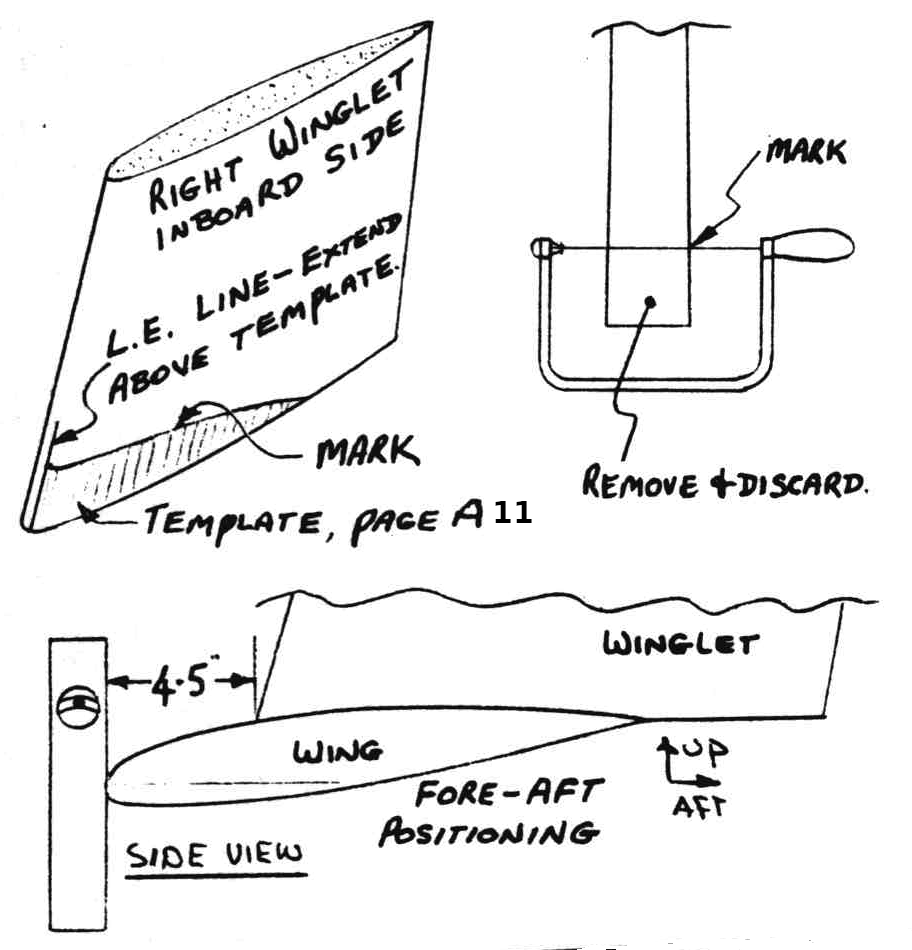 RIGHT WINGLET
INBOARD SIDE
L.E. LINE-EXTEND
ABOVE TEMPLATE.
MARK
TEMPLATE, PAGE A 11
MARK
REMOVE & DISCARD.
4.5"
WINGLET
WING
UP
AFT
FORE-AFT
POSITIONING
SIDE VIEW